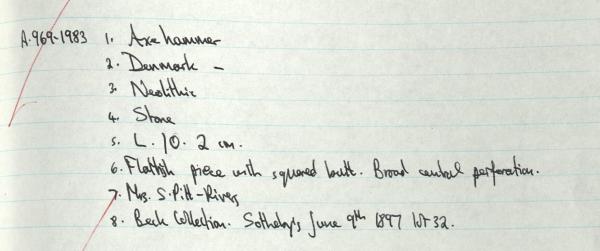 A.969-1983 1. Axe hammer
2. Denmark -
3. Neolithic
4. Stone
5. L. 10.2 cm.
6. Flattish piece with squared butt. Broad central perforation.
7. Mrs. S. Pitt-Rivers
8. Beck Collection. Sotheby's June 9th 1897 lot 32.